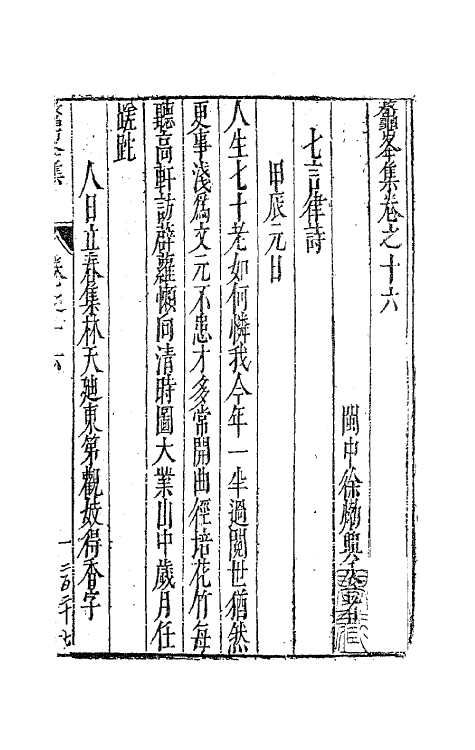 鼇峯集卷之十六
閩中徐𤊹興公著
七言律詩
甲辰元日
人生七十老如何憐我今年一半過閱世猶然
更事淺爲文元不患才多常開曲徑培花竹每
聽高軒訪薜蘿懶向清時圖大業山中歲月任
蹉跎
人日立春集林天廸東第觀妓得香字
鼇峯集
卷之十六
一